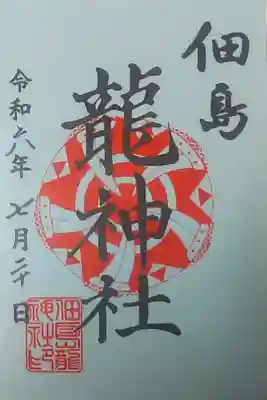 佃島
龍神社
令和六年 七月二十日
佃島龍
神社之印